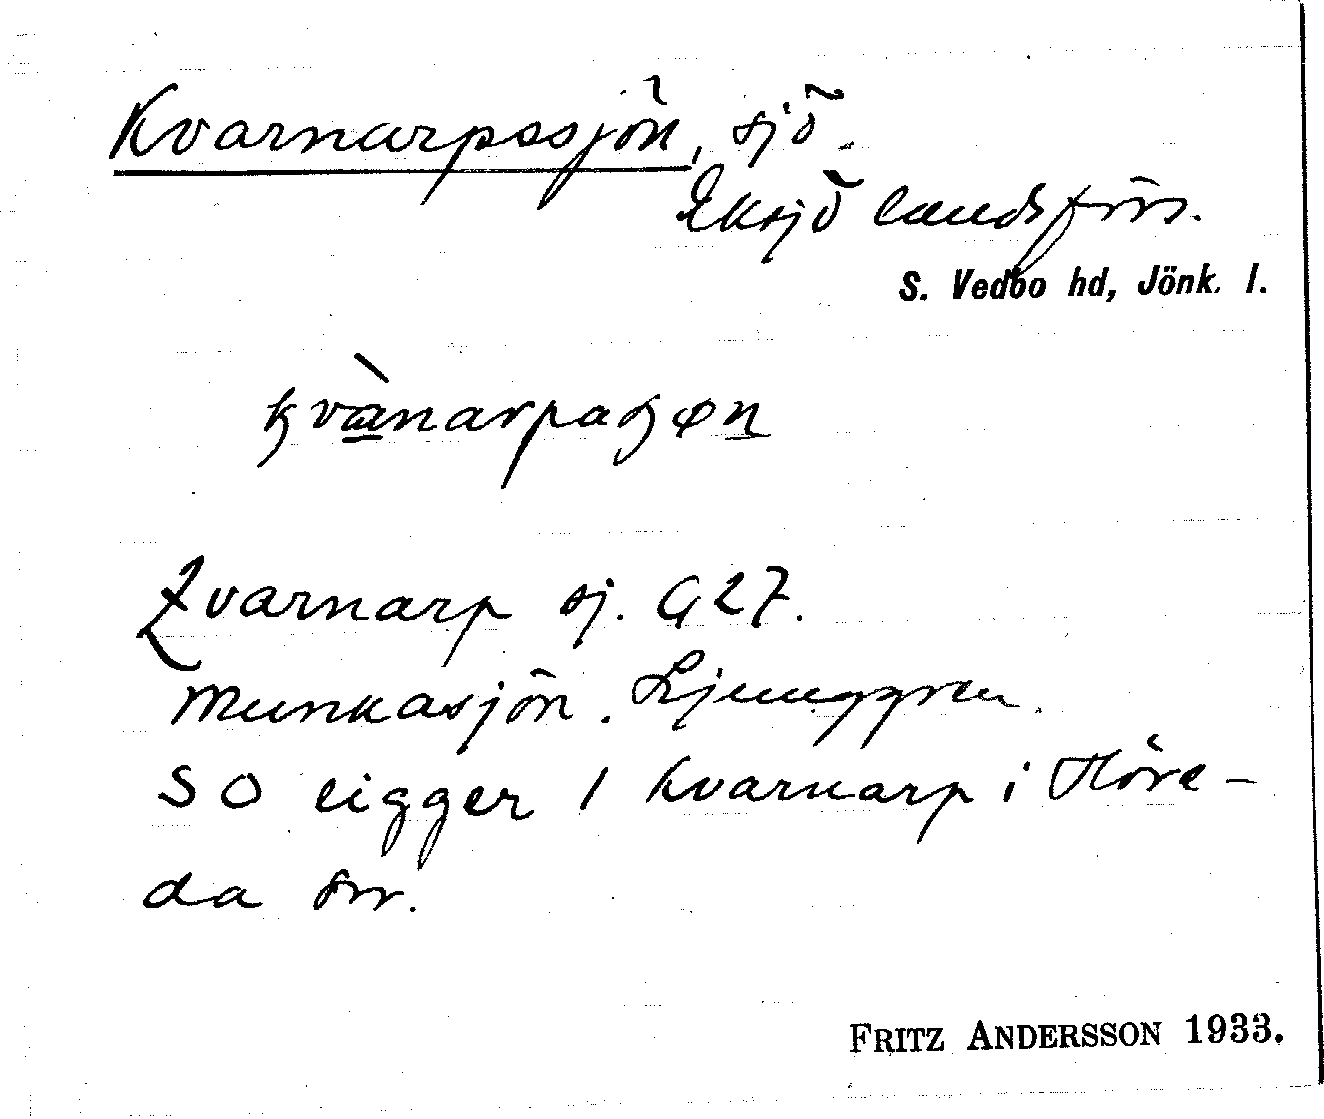 Kvarnarpssjön, sjö
Eksjö landsförs.
S. Vedbo hd, Jönk. l.
Kvarnarp sj. G 27.
Munkasjön. Ljunggren.
SO ligger / Kvarnarp i Höre-
da sn.
FRITZ ANDERSSON 1933.